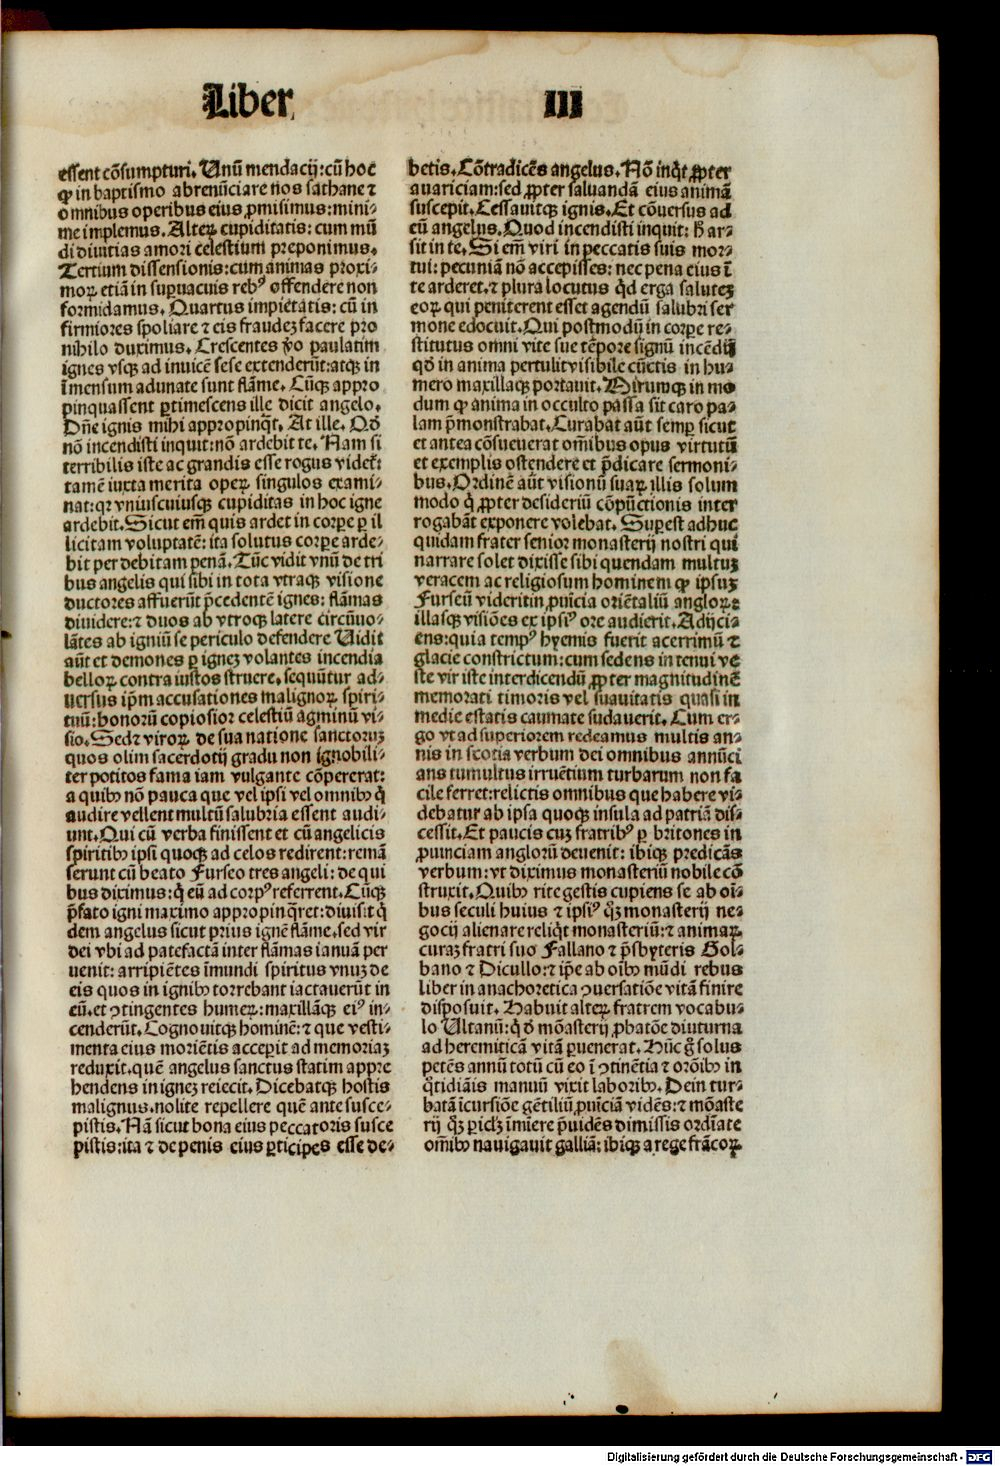 Liber III
essent cõsumpturi. Unũ mendacij: cũ hoc
ꝙ in baptismo abrenũciare nos sathane ⁊
omnibus operibus eius ꝓmisimus: mini⸗
me implemus. Alteꝝ cupiditatis: cum mũ
di diuitias amori celestium preponimus.
Tertium dissensionis: cum animas proxi⸗
moꝝ etiã in suꝑuacuis rebꝰ offendere non
formidamus. Quartus impietatis: cũ in
firmiores spoliare ⁊ eis fraudeꝫ facere pro
nihilo duximus. Crescentes ꝟo paulatim
ignes vsqꝫ ad inuicẽ sese extenderũt: atqꝫ in
ĩmensum adunate sunt flãme. Cũqꝫ appro
pinquassent ꝑtimescens ille dicit angelo.
Dñe ignis mihi appropinq̃t. At ille. Qđ
nõ incendisti inquit: nõ ardebit te. Nam si
terribilis iste ac grandis esse rogus videt᷑:
tamẽ iuxta merita opeꝝ singulos exami⸗
nat: qꝛ vniuscuiusqꝫ cupiditas in hoc igne
ardebit. Sicut em̃ quis ardet in corꝑe ꝑ il
licitam voluptatẽ: ita solutus corꝑe arde⸗
bit per debitam penã. Tũc vidit vnũ de tri
bus angelis qui sibi in tota vtraqꝫ visione
ductores affuerũt p̃cedentẽ ignes: flãmas
diuidere: ⁊ duos ab vtroqꝫ latere circũuo⸗
lãtes ab igniũ se periculo defendere Uidit
aũt et demones ꝑ igneꝫ volantes incendia
belloꝝ contra iustos struere. sequũtur ad⸗
uersus ip̃m accusationes malignoꝝ spiri⸗
tuũ: bonorũ copiosior celestiũ agminũ vi⸗
sio. Sed ⁊ viroꝝ de sua natione sanctoruꝫ
quos olim sacerdotij gradu non ignobili⸗
ter potitos fama iam vulgante cõpererat:
a quibꝰ nõ pauca que vel ipsi vel omnibꝰ q̃
audire vellent multũ salubria essent audi⸗
uit. Qui cũ verba finissent et cũ angelicis
spiritibꝰ ipsi quoqꝫ ad celos redirent: remã
serunt cũ beato Furseo tres angeli: de qui
bus diximus: q̃ eũ ad corpꝰ referrent. Cũqꝫ
p̃fato igni maximo appropinq̃ret: diuisit q̃
dem angelus sicut prius ignẽ flãme. sed vir
dei vbi ad patefactã inter flãmas ianuã per
uenit: arripiẽtes ĩmundi spiritus vnuꝫ de
eis quos in ignibꝰ torrebant iactauerũt in
eũ. et ꝯtingentes humeꝝ: maxillãqꝫ eiꝰ in⸗
cenderũt. Cognouitqꝫ hominẽ: ⁊ que vesti⸗
menta eius moriẽtis acceꝑit ad memoriaꝫ
reduxit. quẽ angelus sanctus statim appre
hendens in igneꝫ reiecit. Dicebatqꝫ hostis
malignus. nolite repellere quẽ ante susce⸗
pistis. Nã sicut bona eius peccatoris susce
pistis: ita ⁊ de penis eius ꝑticipes esse de⸗
betis. Cõtradicẽs angelus. Nõ inq̃t ꝓpter
auariciam: sed ꝓpter saluandã eius animã
suscepit. Cessauitqꝫ ignis. Et cõuersus ad
eũ angelus. Quod incendisti inquit: h̃ ar⸗
sit in te. Si em̃ viri in peccatis suis mor⸗
tui: pecuniã nõ accepisses: nec pena eius ĩ
te arderet. ⁊ plura locutus q̃d erga saluteꝫ
eoꝝ qui peniterent esset agendũ salubri ser
mone edocuit. Qui postmodũ in corꝑe re⸗
stitutus omni vite sue tẽpore signũ incẽdij
qđ in anima pertulit visibile cũctis in hu⸗
mero maxillaqꝫ portauit. Mirumqꝫ in mo
dum ꝙ anima in occulto passa sit caro pa⸗
lam p̃monstrabat. Curabat aũt semꝑ sicut
et antea cõsueuerat om̃ibus opus virtutũ
et exemplis ostendere et p̃dicare sermoni⸗
bus. Ordinẽ aũt visionũ suaꝝ illis solum
modo q̃ ꝓpter desideriũ cõpũctionis inter
rogabãt exponere volebat. Suꝑest adhuc
quidam frater senior monasterij nostri qui
narrare solet dixisse sibi quendam multuꝫ
veracem ac religiosum hominem ꝙ ipsuꝫ
Furseũ viderit in ꝓuĩcia oriẽtaliũ angloꝝ:
illasqꝫ visiões ex ipsiꝰ ore audierit. Adijci⸗
ens: quia tempꝰ hyemis fuerit acerrimũ ⁊
glacie constrictum: cum sedens in tenui ve
ste vir iste inter dicendũ ꝓpter magnitudinẽ
memorati timoris vel suauitatis quasi in
medie estatis caumate sudauerit. Cum er⸗
go vt ad superiorem redeamus multis an⸗
nis in scotia verbum dei omnibus annũci
ans tumultus irruẽtium turbarum non fa
cile ferret: relictis omnibus que habere vi⸗
debatur ab ipsa quoqꝫ insula ad patriã dis⸗
cessit. Et paucis cuꝫ fratribꝰ ꝑ britones in
ꝓuinciam anglorũ deuenit: ibiqꝫ predicãs
verbum: vt diximus monasteriũ nobile cõ
struxit. Quibꝰ rite gestis cupiens se ab oĩ⸗
bus seculi huius ⁊ ipsiꝰ qꝫ monasterij ne⸗
gocij alienare reliq̃t monasteriũ: ⁊ animaꝝ
curaꝫ fratri suo Fallano ⁊ p̃sbyteris Gol⸗
bano ⁊ Dicullo: ⁊ ip̃e ab oĩbꝰ mũdi rebus
liber in anachoretica ꝯuersatiõe vitã finire
disposuit. Habuit alteꝝ fratrem vocabu⸗
lo Ultanũ: q̃ đ mõasterij ꝓbatõe diuturna
ad heremiticã vitã ꝑuenerat. Hũc g̃ solus
petẽs annũ totũ cũ eo ĩ ꝯtinẽtia ⁊ orõibꝰ in
q̃tidiãis manuũ vixit laboribꝰ. Dein tur⸗
batã ĩcursiõe gẽtiliũ ꝓuĩciã vidẽs: ⁊ mõaste
rij qꝫ ꝑicl̃ꝫ ĩmĩere p̃uidẽs dimissis ordĩate
om̃ibꝰ nauigauit galliã: ibiqꝫ a rege frãcoꝝ
Digitalisierung gefördert durch die Deutsche Forschungsgemeinschaft - DFG